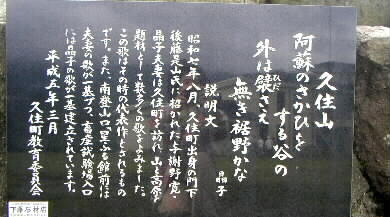 久住山
阿蘇のさかひをする谷の
外は襞さえ
無き裾野かな
晶子
説明文
昭和七年八月、久住町出身の門下
後藤是山氏に招かれた与謝野寛・
晶子夫妻は久住町を訪れ、山と高原を
題材として数多くの歌をよみました。
この歌はその時の代表作とされるもの
です。また、南登山口「星ふる館」前には
夫妻の歌が一基づつ、畜産試験場入口
には晶子の歌が一基建立されています。
平成五年三月
久住町教育委員会